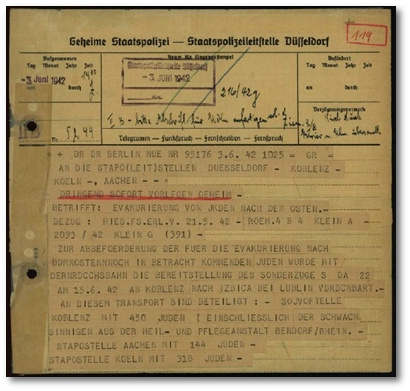 119
Geheime Staatspolizei — Staatspolizeileitstelle Düsseldorf
Aufgenommen
Tag Monat Jahr Zeit
Raum für Eingangsstempel
Befördert
Tag Monat Jahr Zeit
-3. Juni 1942
von durch
- 3. JUNI 1942
an durch
216/42g
Verzögerungsvermerk
Telegramm — Funkspruch — Fernschreiben — Fernspruch
+ DR DR BERLIN NUE NR 95176 3.6.42 1025 = GR =
AN DIE STAPO(LEIT)STELLEN DUESSELDORF - KOBLENZ -
KOELN -, AACHEN - - =
DRINGEND SOFORT VORLEGEN GEHEIM -
BETRIFFT: EVAKUIERUNG VON JKDEN NACH DEM OSTEN.-
BEZUG : HIES.FS.ERL.V. 21.5.42 - (ROEM.4 B 4 KLEIN A -
2093 / 42 KLEIN G (391) -
ZUR ABBEFOERDERUNG DER FUER DIE EVAKUIERUNG NACH
IN BETRACHT KOMMENDEN JUDEN WURDE MIT
DIE BEREITSTELLUNG DES SONDERZUGES DA 22
AM 15.6.42 AB KOBLENZ NACH IZBICA BEI LUBLIN
AN DIESEM TRANSPORT SIND BETEILIGT: -
KOBLENZ MIT 450 JUDEN ( EINSCHLIESSLICH DER SCHWACH
SINNIGEN AUS DER HEIL- UND PFLEGEANSTALT BENDORF/RHEIN. -
STAPOSTELLE AACHEN MIT 144 JUDEN -
STAPOSTELLE KOELN MIT 318 JUDEN -